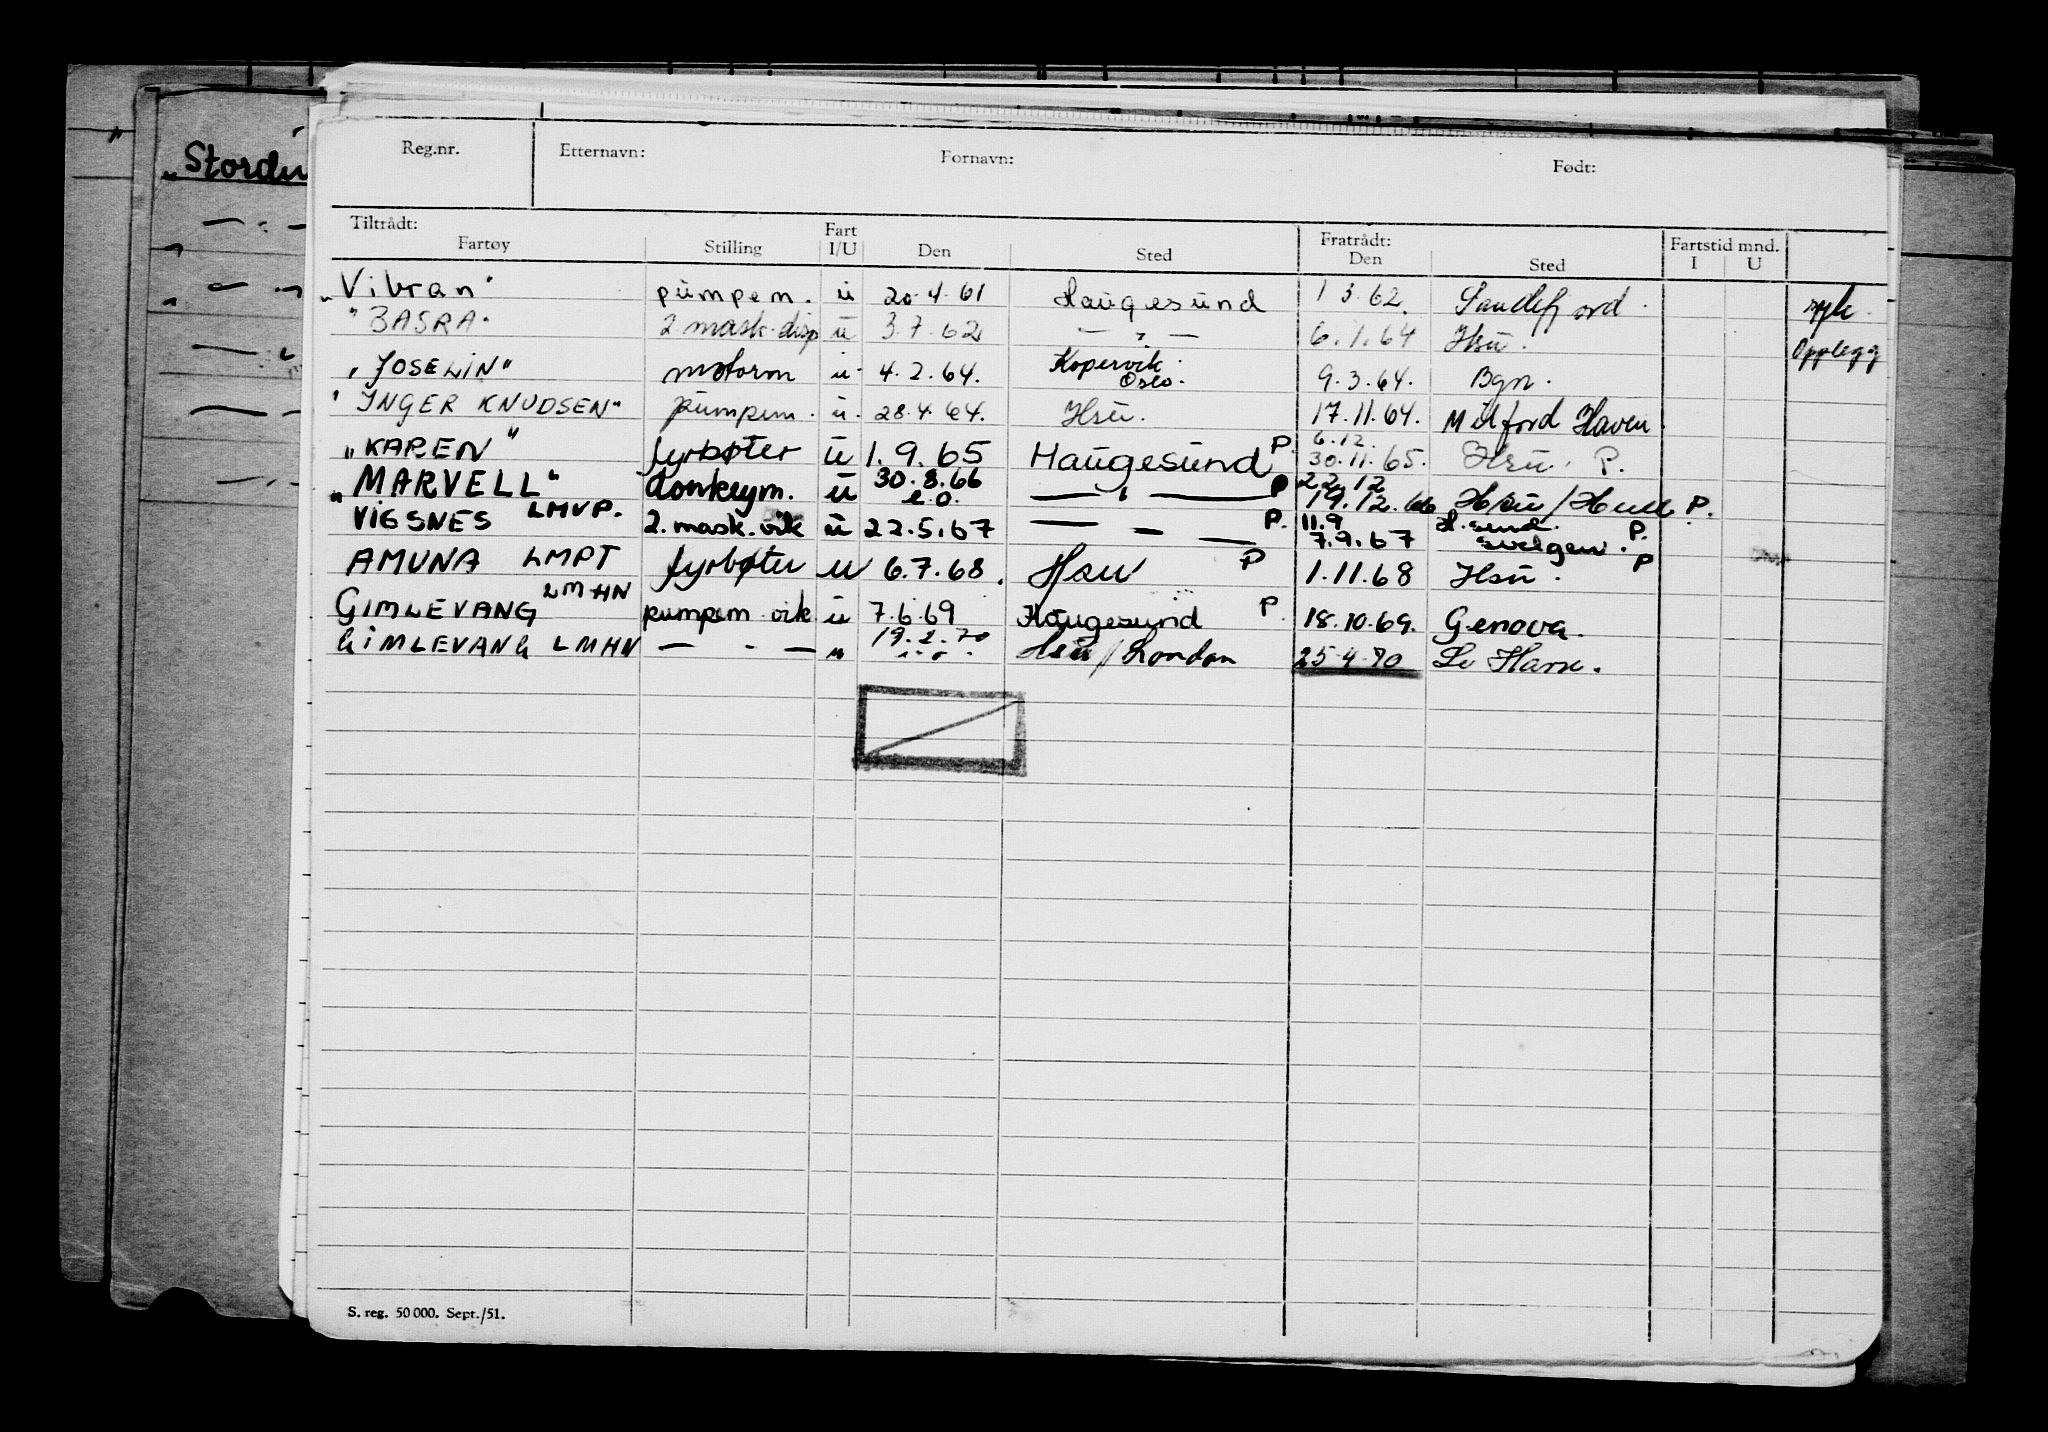 "Stordu
Reg.nr. Etternavn: Fornavn: Født:
Tiltrådt: Fartøy Stilling Fart I/U Den Sted Fratrådt: Den Sted Fartstid mnd. I U
"Vibran" pumpem. u 20.4.61 Haugesund 1 3.62. Sandefjord. syk.
"BASRA" 2. mask. disp u 3.7.62 — " — 6.1.64 Hsu. Opplegg
"JOSELIN" motorm u. 4.2.64. Kopervik. Oslo. 9.3.64. Bgn.
"INGER KNUDSEN" pumpem. u. 28.4.64. Hsu. 17.11.64. Milford Haven.
"KAREN" fyrbøter u 1.9.65 Haugesund P. 6.12. 30.11.65. Hsu. P.
"MARVELL" donkeym. u 30.8.66 e.o. — " — P 22.12 19.12.66 Hsu/Hull P.
VIGSNES LMVP. 2. mask. vik u 22.5.67 — — — P. 11.9 7.9.67 H.sund. P. Svelgen. P
AMUNA LMPT fyrbøter u 6.7.68. Hsu P 1.11.68 Hsu.
GIMLEVANG LMHN pumpem. vik u 7.6.69 Haugesund P. 18.10.69. Genova.
GIMLEVANG LMHN — - — " 19.2.70 Hsu/London 25.4.70 Le Havre.
S. reg. 50 000. Sept./51.